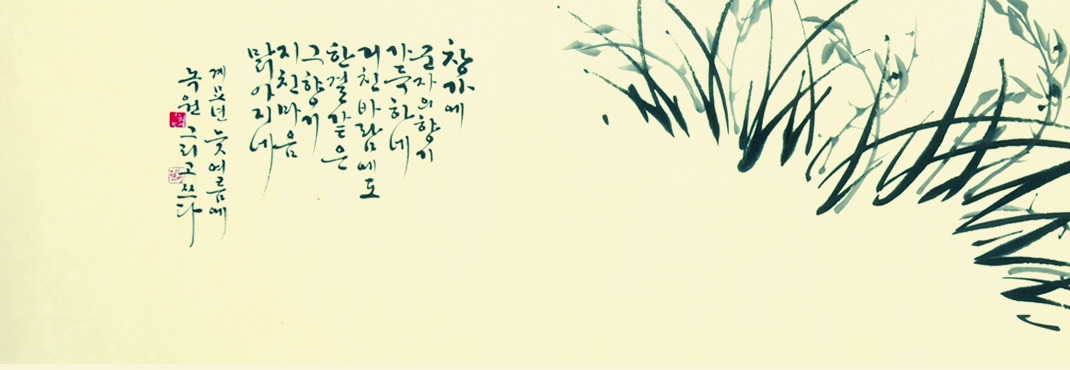 창가에
군자의 향기
가득하네
거친 바람에도
한결같은
그 향기
지친 마음
맑아지네
계묘년 늦여름에
녹원 그리고 쓰다